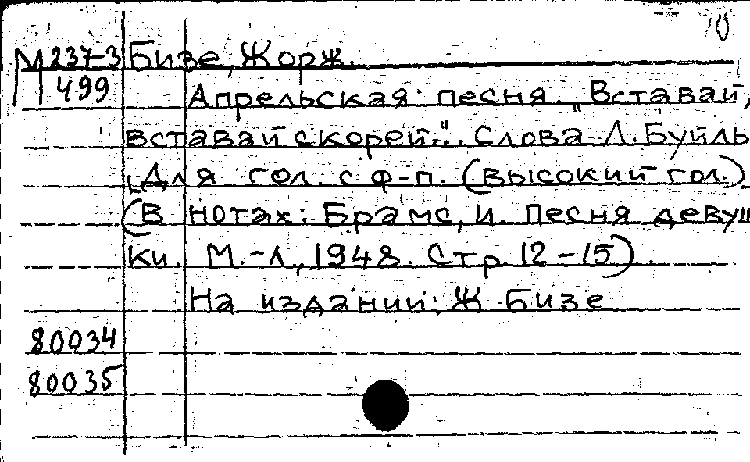 М 237-3 Бизе, Жорж.
499 Апрельская песня. „Вставай,
вставай скорей.". Слова Л. Буйль
Для гол. с ф-п. (высокий гол.)
(В нотах: Брамс, И. Песня девуш
ки. М.-Л., 1948. Стр. 12-15).
На издании: Ж. Бизе
80034
80035